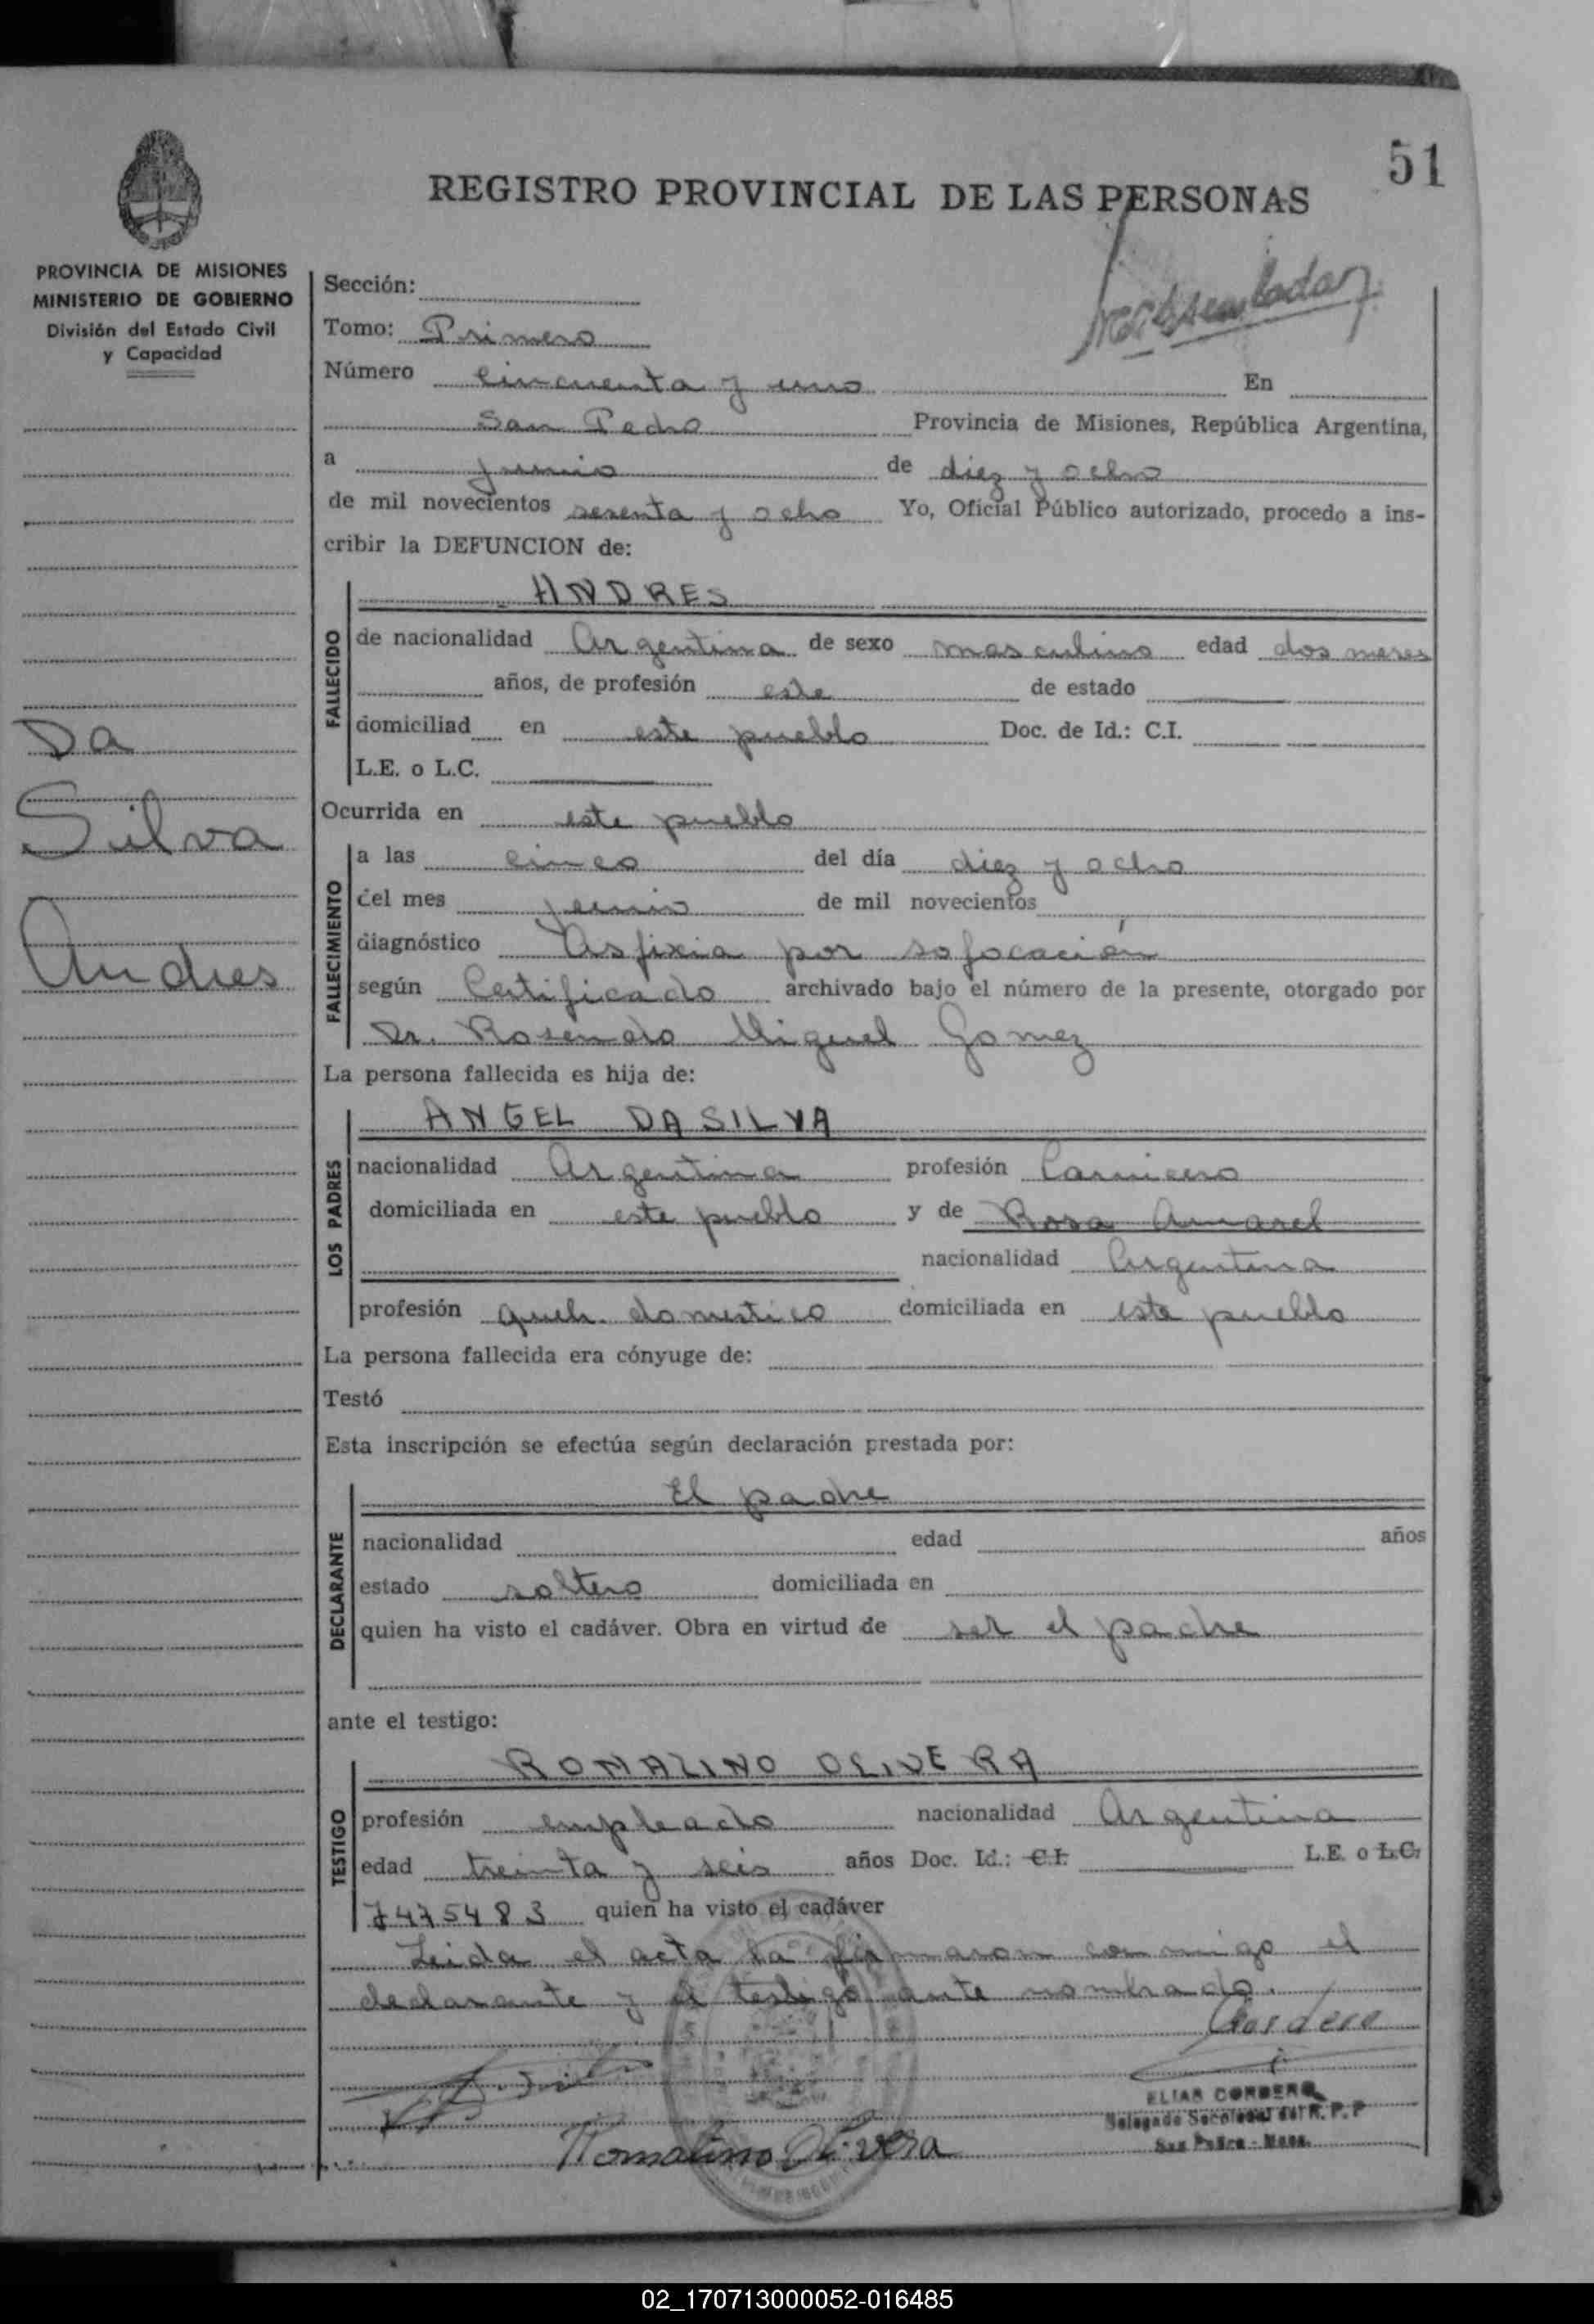 51
REGISTRO PROVINCIAL DE LAS PERSONAS
PROVINCIA DE MISIONES
MINISTERIO DE GOBIERNO
División del Estado Civil
y Capacidad
Da
Silva
Andres
Sección:
Tomo: Primero
Número cincuenta y uno En
San Pedro Provincia de Misiones, República Argentina,
a junio de diez y ocho
de mil novecientos sesenta y ocho Yo, Oficial Público autorizado, procedo a ins-
cribir la DEFUNCION de:
FALLECIDO
ANDRES
de nacionalidad Argentina de sexo masculino edad dos meses
años, de profesión este de estado
domiciliad en este pueblo Doc. de Id.: C.I.
L.E. o L.C.
Ocurrida en este pueblo
FALLECIMIENTO
a las cinco del día diez y ocho
del mes junio de mil novecientos
diagnóstico Asfixia por sofocación
según Certificado archivado bajo el número de la presente, otorgado por
Dr. Rosendo Miguel Gomez
La persona fallecida es hija de:
LOS PADRES
ANGEL DA SILVA
nacionalidad Argentina profesión Carnicero
domiciliada en este pueblo y de Rosa Amarel
nacionalidad Argentina
profesión queh. domestico domiciliada en este pueblo
La persona fallecida era cónyuge de:
Testó
Esta inscripción se efectúa según declaración prestada por:
DECLARANTE
El padre
nacionalidad edad años
estado soltero domiciliada en
quien ha visto el cadáver. Obra en virtud de ser el padre
ante el testigo:
TESTIGO
ROMALINO OLIVERA
profesión empleado nacionalidad Argentina
edad treinta y seis años Doc. Id.: C.I. L.E. o L.C.
7475483 quien ha visto el cadáver
Leida el acta la firmaron conmigo el
declarante y el testigo ante nombrado.
Cordero
ELIAS CORDERO
Delegado Seccional del R. P. P
San Pedro - Mnes.
Romalino Olivera
02_170713000052-016485